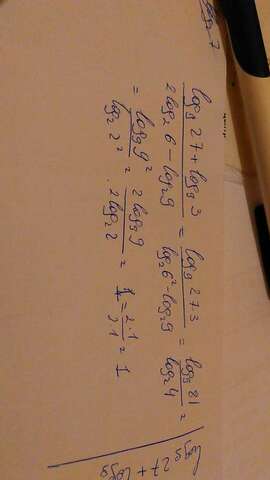 log₉27 + log₉3 / 2log₂6 - log₂9 = log₉27·3 / log₂6² - log₂9 = log₉81 / log₂4 =
= log₉9² / log₂2² = 2log₉9 / 2log₂2 = 2·1 / 2·1 = 1